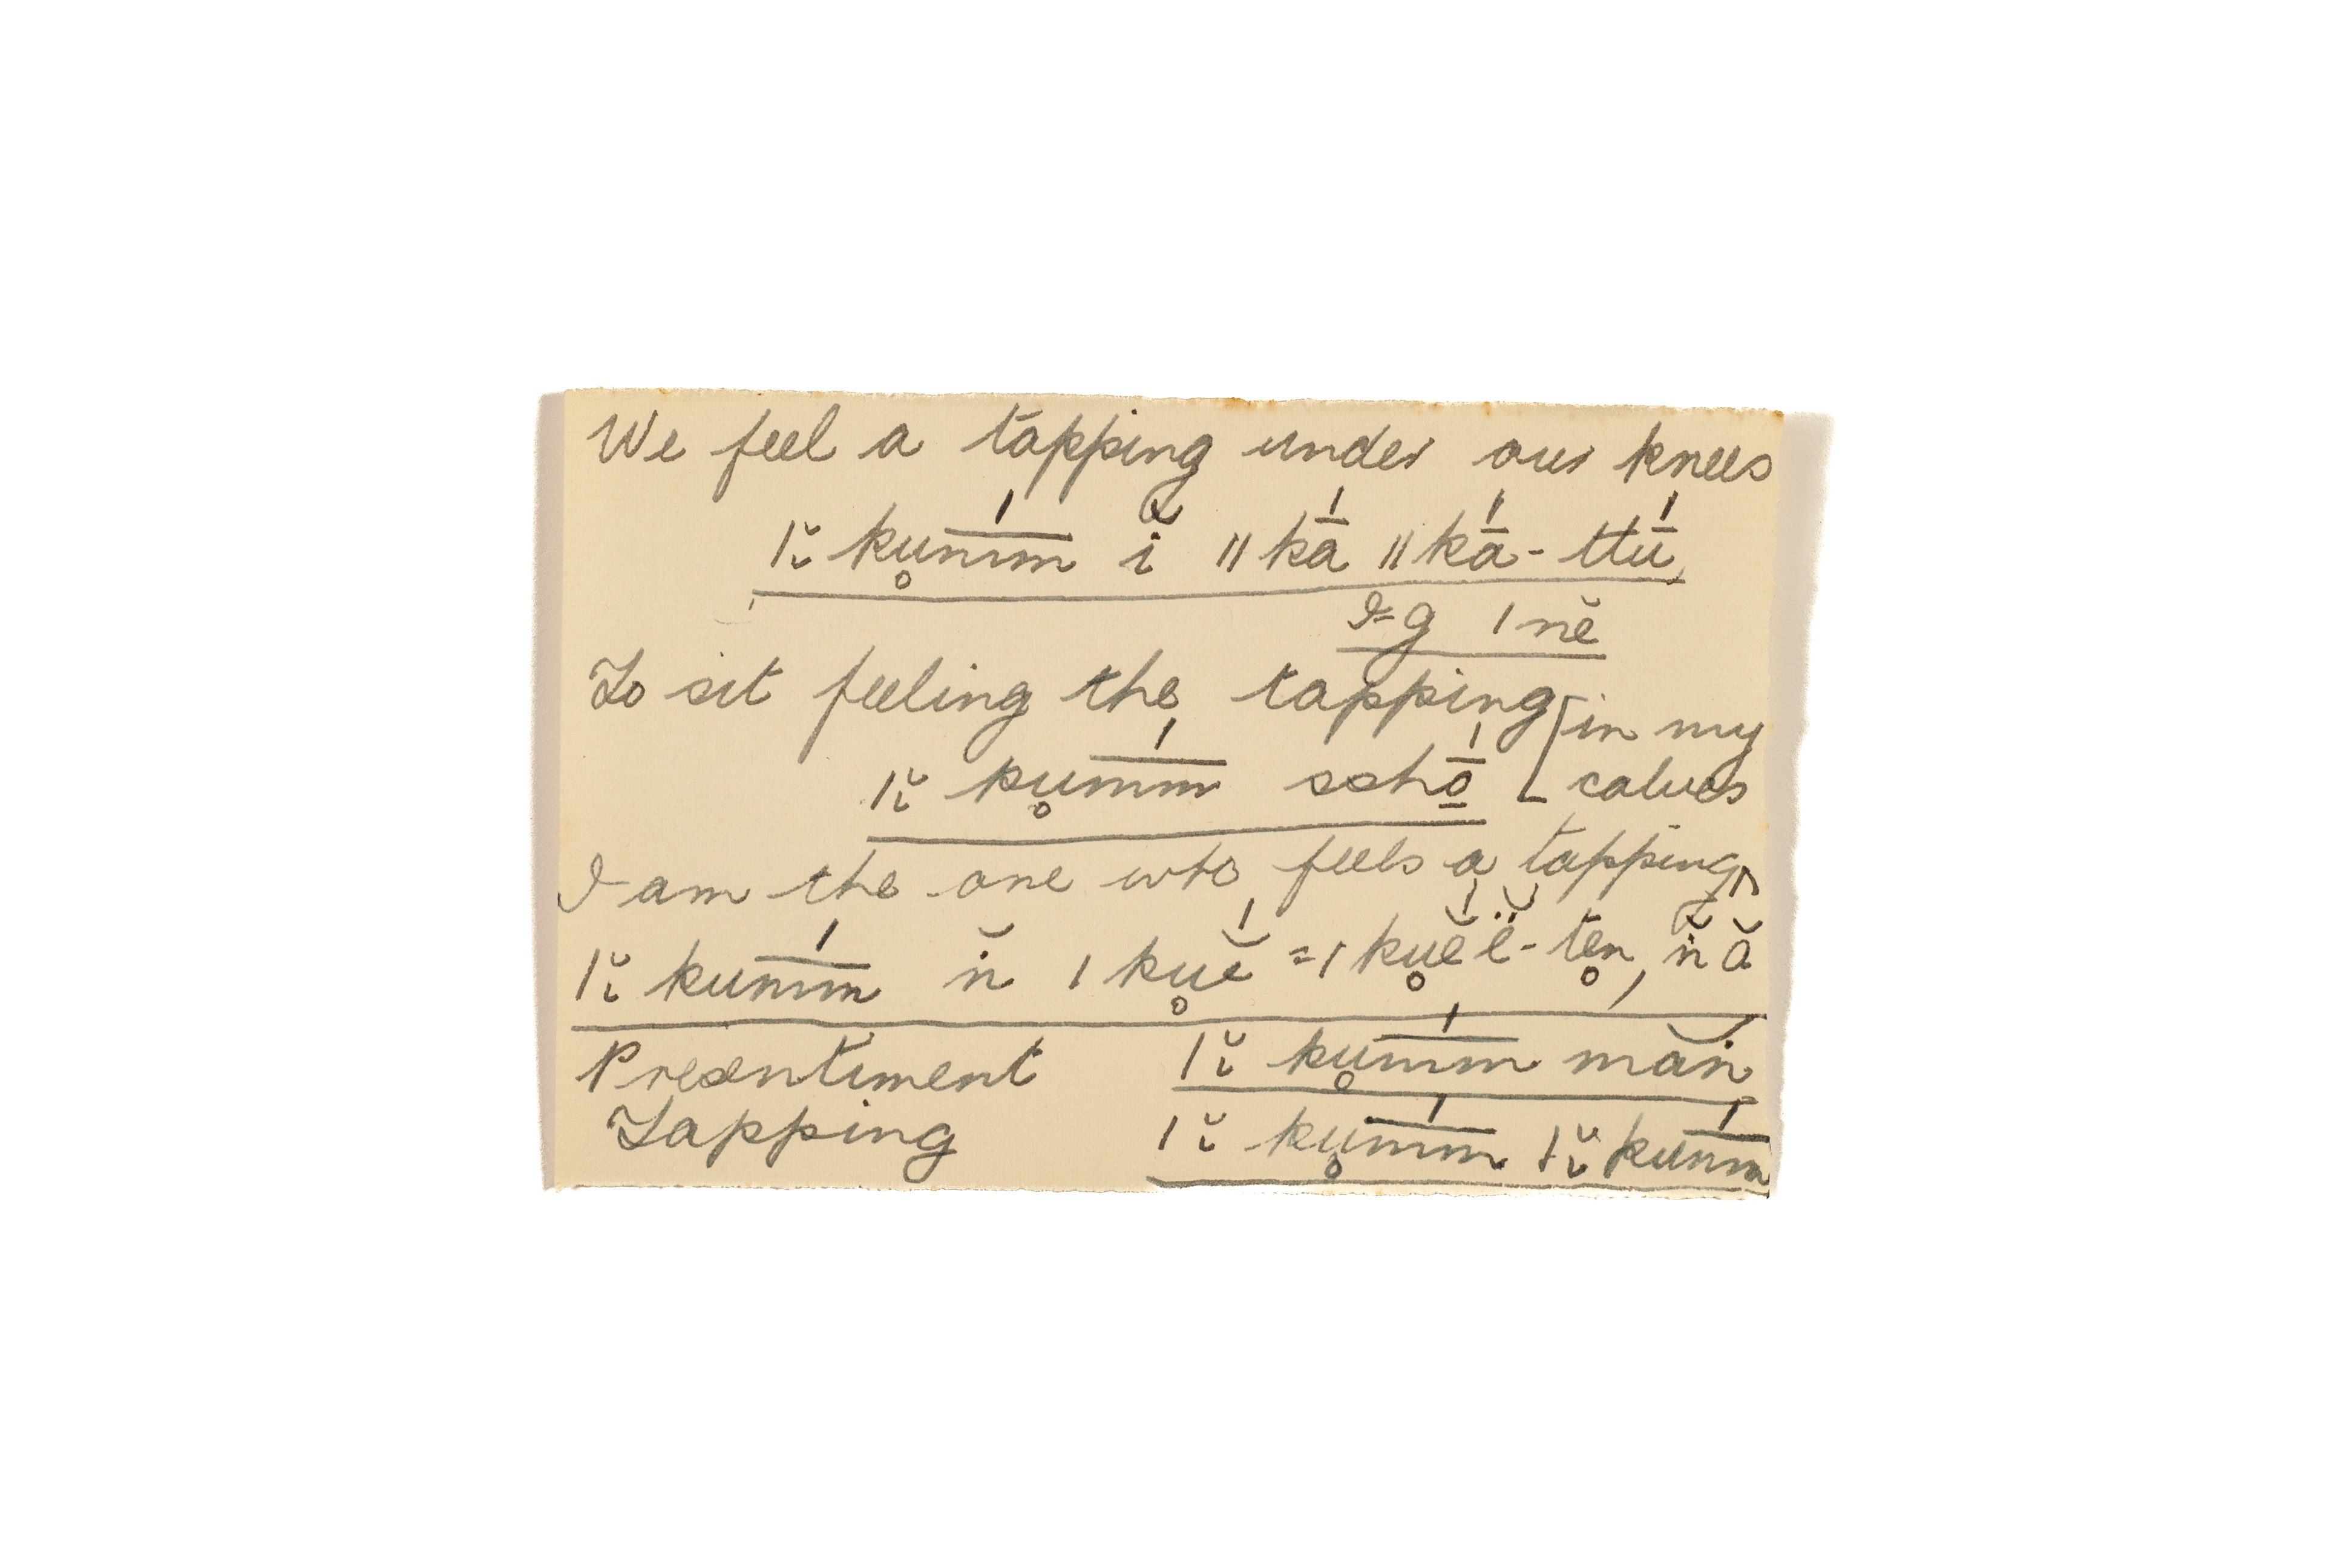 We feel a tapping under our knees
|ĭ ku̥m̄́m ĭ ǁkā́ ǁkā́-ttū́
I=g |nĕ
To sit feeling the tapping [in my
|ĭ ku̥m̄́m sshṓ̱ calves
I am the one who feels a tapping
|ĭ kum̄́m n̆ |ku̥ĕ́ =|ku̥ĕ́ĕ̈-te̥n, n̆ ă
Presentiment |ĭ ku̥m̄́m măn
Tapping |ĭ ku̥m̄́m |ĭ kum̄́m